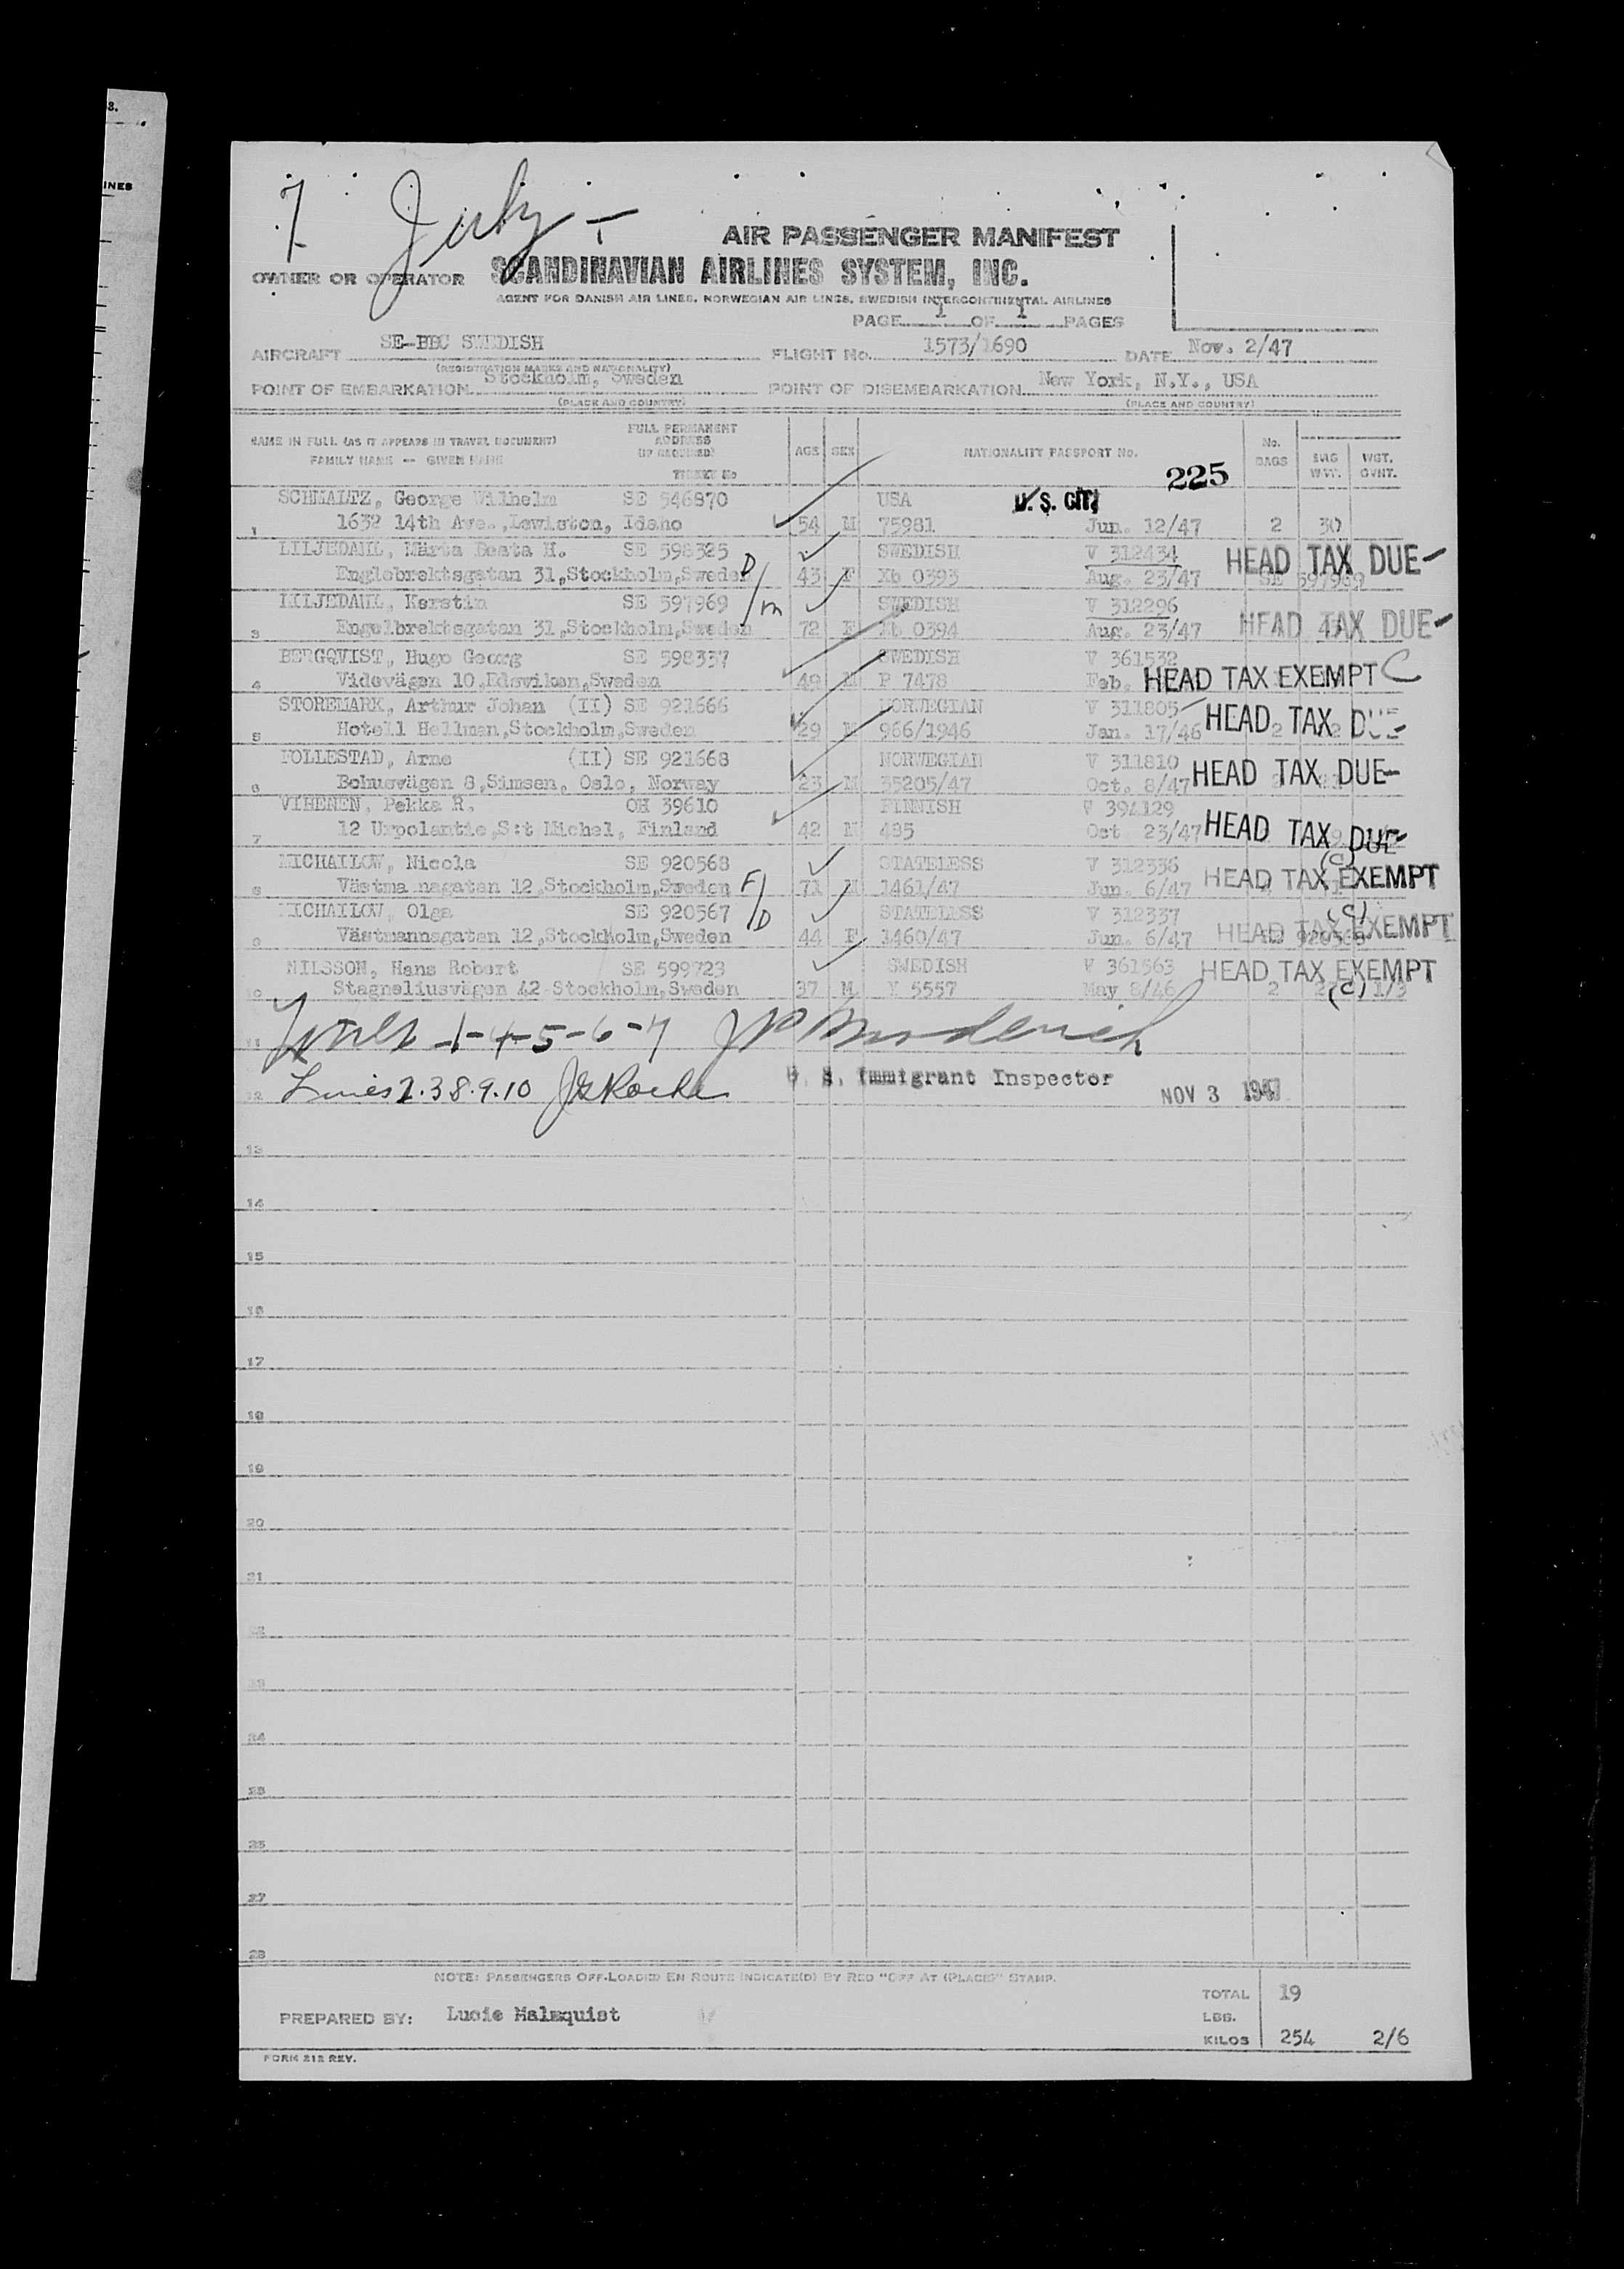 8.
INES
7 July -
AIR PASSENGER MANIFEST
OWNER OR OPERATOR SCANDINAVIAN AIRLINES SYSTEM, INC.
AGENT FOR DANISH AIR LINES, NORWEGIAN AIR LINES, SWEDISH INTERCONTINENTAL AIRLINES
PAGE 1 OF 1 PAGES
AIRCRAFT SE-BBC SWEDISH FLIGHT No. 1573/1690 DATE Nov. 2/47
(REGISTRATION MARKS AND NATIONALITY)
POINT OF EMBARKATION Stockholm, Sweden POINT OF DISEMBARKATION New York, N.Y., USA
(PLACE AND COUNTRY) (PLACE AND COUNTRY)
NAME IN FULL (AS IT APPEARS IN TRAVEL DOCUMENT) FULL PERMANENT ADDRESS (IF REQUIRED) AGE SEX NATIONALITY PASSPORT No. No. BAGS BAG WGT. WGT. OVHT.
FAMILY NAME -- GIVEN NAME TICKET No
225
SCHMALTZ, George Wilhelm SE 546870 USA U. S. CIT.
1 1632 14th Ave.,Lewiston, Idaho 54 M 75981 Jun. 12/47 2 30
LILJEDAHL, Märta Beata H. SE 598325 SWEDISH V 312434 HEAD TAX DUE-
Englebrektsgatan 31,Stockholm,Sweden D/ 43 F Xb 0393 Aug. 23/47 SE 597969
LILJEDAHL, Kerstin SE 597969 /m SWEDISH V 312296
3 Engelbrektsgatan 31,Stockholm,Sweden 72 F Xb 0394 Aug. 23/47 HEAD TAX DUE-
BERGQVIST, Hugo Georg SE 598337 SWEDISH V 361532
4 Videvägen 10,Edsviken,Sweden 49 M P 7478 Feb. HEAD TAX EXEMPT C
STOREMARK, Arthur Johan (II) SE 921666 NORWEGIAN V 311805
5 Hotell Hellman,Stockholm,Sweden 29 M 966/1946 Jan. 17/46 HEAD TAX DUE-
FOLLESTAD, Arne (II) SE 921668 NORWEGIAN V 311810
6 Bohusvägen 8,Simsen, Oslo, Norway 23 M 35205/47 Oct. 8/47 HEAD TAX DUE-
VIHENEN, Pekka R. OH 39610 FINNISH V 394129
7 12 Urpolantie,S:t Michel, Finland 42 M 485 Oct 23/47 HEAD TAX DUE-
MICHAILOW, Nicola SE 920568 STATELESS V 312336 (C)
8 Västmannagatan 12,Stockholm,Sweden F/ 71 M 1461/47 Jun. 6/47 HEAD TAX EXEMPT
MICHAILOW, Olga SE 920567 /D STATELESS V 312337 (C)
9 Västmannagatan 12,Stockholm,Sweden 44 F 1460/47 Jun. 6/47 HEAD TAX EXEMPT
NILSSON, Hans Robert SE 599723 SWEDISH V 361563 HEAD TAX EXEMPT
10 Stagneliusvägen 42 Stockholm,Sweden 37 M Y 5557 May 8/46 2 (C) 1/3
11 Lines 1-4-5-6-7
12 Lines 2.3 8.9.10 U. S. Immigrant Inspector NOV 3 1947
13
14
15
16
17
18
19
20
21
22
23
24
25
26
27
28
NOTE: PASSENGERS OFF-LOADED EN ROUTE INDICATE(D) BY RED "OFF AT (PLACE)" STAMP.
TOTAL 19
PREPARED BY: Lucie Malmquist LBS.
KILOS 254 2/6
FORM 212 REV.